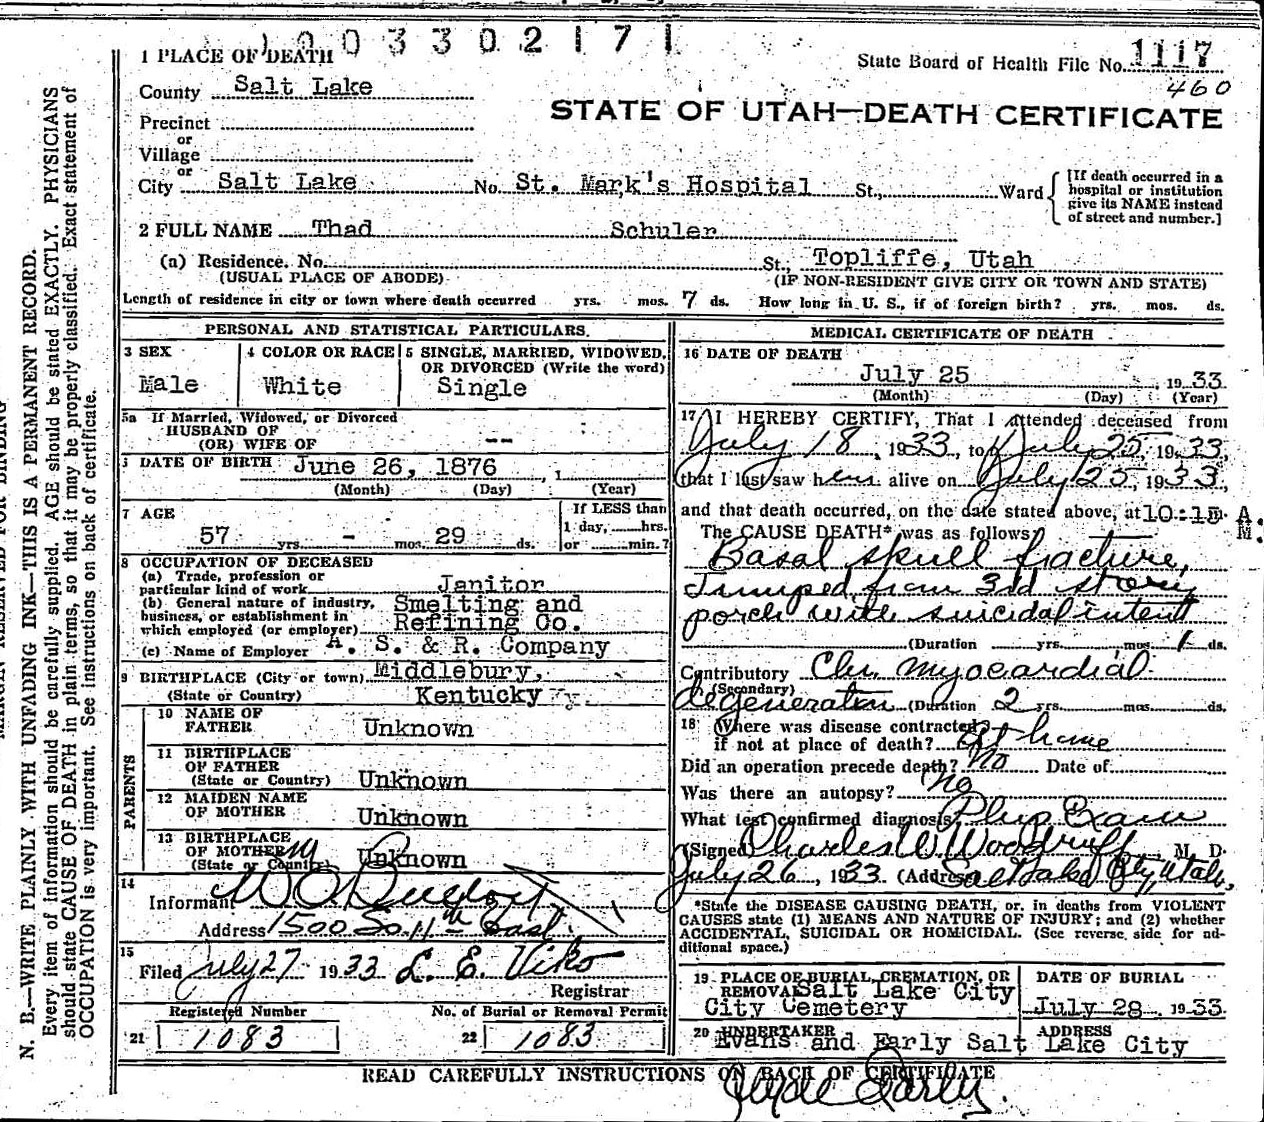 1003302171
1 PLACE OF DEATH
State Board of Health File No. 1117
460
County Salt Lake
STATE OF UTAH—DEATH CERTIFICATE
Precinct
or
Village
or
City Salt Lake No. St. Mark's Hospital St., Ward
[If death occurred in a
hospital or institution
give its NAME instead
of street and number.]
2 FULL NAME Thad Schuler
(a) Residence. No. St., Topliffe, Utah
(USUAL PLACE OF ABODE) (IF NON-RESIDENT GIVE CITY OR TOWN AND STATE)
Length of residence in city or town where death occurred yrs. mos. 7 ds. How long in U. S., if of foreign birth? yrs. mos. ds.
PERSONAL AND STATISTICAL PARTICULARS.
3 SEX
Male
4 COLOR OR RACE
White
5 SINGLE, MARRIED, WIDOWED,
OR DIVORCED (Write the word)
Single
5a If Married, Widowed, or Divorced
HUSBAND OF
(OR) WIFE OF --
DATE OF BIRTH June 26, 1876, 1
(Month) (Day) (Year)
7 AGE
57 yrs. - mos. 29 ds.
If LESS than
1 day, hrs.
or min.?
8 OCCUPATION OF DECEASED
(a) Trade, profession or
particular kind of work Janitor
(b) General nature of industry,
business, or establishment in
which employed (or employer) Smelting and
Refining Co.
(c) Name of Employer A. S. & R. Company
9 BIRTHPLACE (City or town) Middlebury,
(State or Country) Kentucky
PARENTS
10 NAME OF
FATHER Unknown
11 BIRTHPLACE
OF FATHER
(State or Country) Unknown
12 MAIDEN NAME
OF MOTHER Unknown
13 BIRTHPLACE
OF MOTHER
(State or Country) Unknown
14
Informant W O
Address 1500 So. 11th East
15
Filed July 27 1933 L. E. Viko
Registrar
Registered Number
21 1083
No. of Burial or Removal Permit
22 1083
MEDICAL CERTIFICATE OF DEATH
16 DATE OF DEATH
July 25, 1933
(Month) (Day) (Year)
17 I HEREBY CERTIFY, That I attended deceased from
July 18, 1933, to July 25, 1933,
that I last saw him alive on July 25, 1933,
and that death occurred, on the date stated above, at 10:15 A. M.
The CAUSE DEATH* was as follows:
Basal skull fracture,
Jumped from 3rd story
porch with suicidal intent
(Duration yrs. mos. 1 ds.
Contributory Chr. myocardial
(Secondary)
degeneration (Duration 2 yrs. mos. ds.
18 Where was disease contracted
if not at place of death? At home
Did an operation precede death? No Date of
Was there an autopsy? No
What test confirmed diagnosis Phys Exam
(Signed Charles W Woodruff M. D.
July 26, 1933 (Address Salt Lake City, Utah.
*State the DISEASE CAUSING DEATH, or, in deaths from VIOLENT
CAUSES state (1) MEANS AND NATURE OF INJURY; and (2) whether
ACCIDENTAL, SUICIDAL OR HOMICIDAL. (See reverse side for ad-
ditional space.)
19 PLACE OF BURIAL, CREMATION, OR
REMOVAL Salt Lake City
City Cemetery
DATE OF BURIAL
July 28, 1933
20 UNDERTAKER
Evans and Early
ADDRESS
Salt Lake City
READ CAREFULLY INSTRUCTIONS ON BACK OF CERTIFICATE
Clyde Early.
MARGIN RESERVED FOR BINDING
N. B.—WRITE PLAINLY WITH UNFADING INK—THIS IS A PERMANENT RECORD.
Every item of information should be carefully supplied. AGE should be stated EXACTLY. PHYSICIANS
should state CAUSE OF DEATH in plain terms, so that it may be properly classified. Exact statement of
OCCUPATION is very important. See instructions on back of certificate.